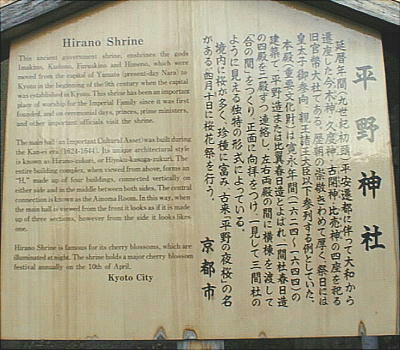 Hirano Shrine
This ancient government shrine, enshrines the gods
Imakino, Kudono, Furuakino and Himeno, which were
moved from the capital of Yamato (present-day Nara) to
Kyoto in the beginning of the 9th century when the capital
was established in Kyoto. This shrine has been an important
place of worship for the Imperial Family since it was first
founded, and on ceremonial days, princes, prime ministers,
and other important officials visit the shrine.
The main hall (an Important Cultural Asset) was built during
the Kan-ei era (1624-1644). Its unique architectural style
is known as Hirano-zukuri, or Hiyoku-kasuga-zukuri. The
entire building complex, when viewed from above, forms an
"H," made up of four buildings, connected vertically on
either side and in the middle between both sides. The central
connection is known as the Ainoma Room. In this way, when
the main hall is viewed from the front it looks as if it is made
up of three sections, however from the side it looks like
one.
Hirano Shrine is famous for its cherry blossoms, which are
illuminated at night. The shrine holds a major cherry blossom
festival annually on the 10th of April.
Kyoto City
平野神社
延暦年間(九世紀初頭)平安遷都に伴って大和から
遷座した今木神、久度神、古開神、比売神の四座を祀る
旧官幣大社である。歴朝の崇敬きわめて厚く、祭日には
皇太子御参向、親王諸王大臣以下参列する例としていた。
本殿(重要文化財)は寛永年間(一六二四〜一六四四)の
建築で、平野造または比翼春日造とよばれ、一間社春日造
の四殿を二殿ずつ連絡し、左右両殿の間に横棟を渡して
「合の間」をつくり、正面に向拝をつけ、一見して三間社の
ように見える独特の形式によっている。
境内に桜が多く、珍種に富み、古来「平野の夜桜」の名
がある。四月十日に桜花祭を行う。
京都市